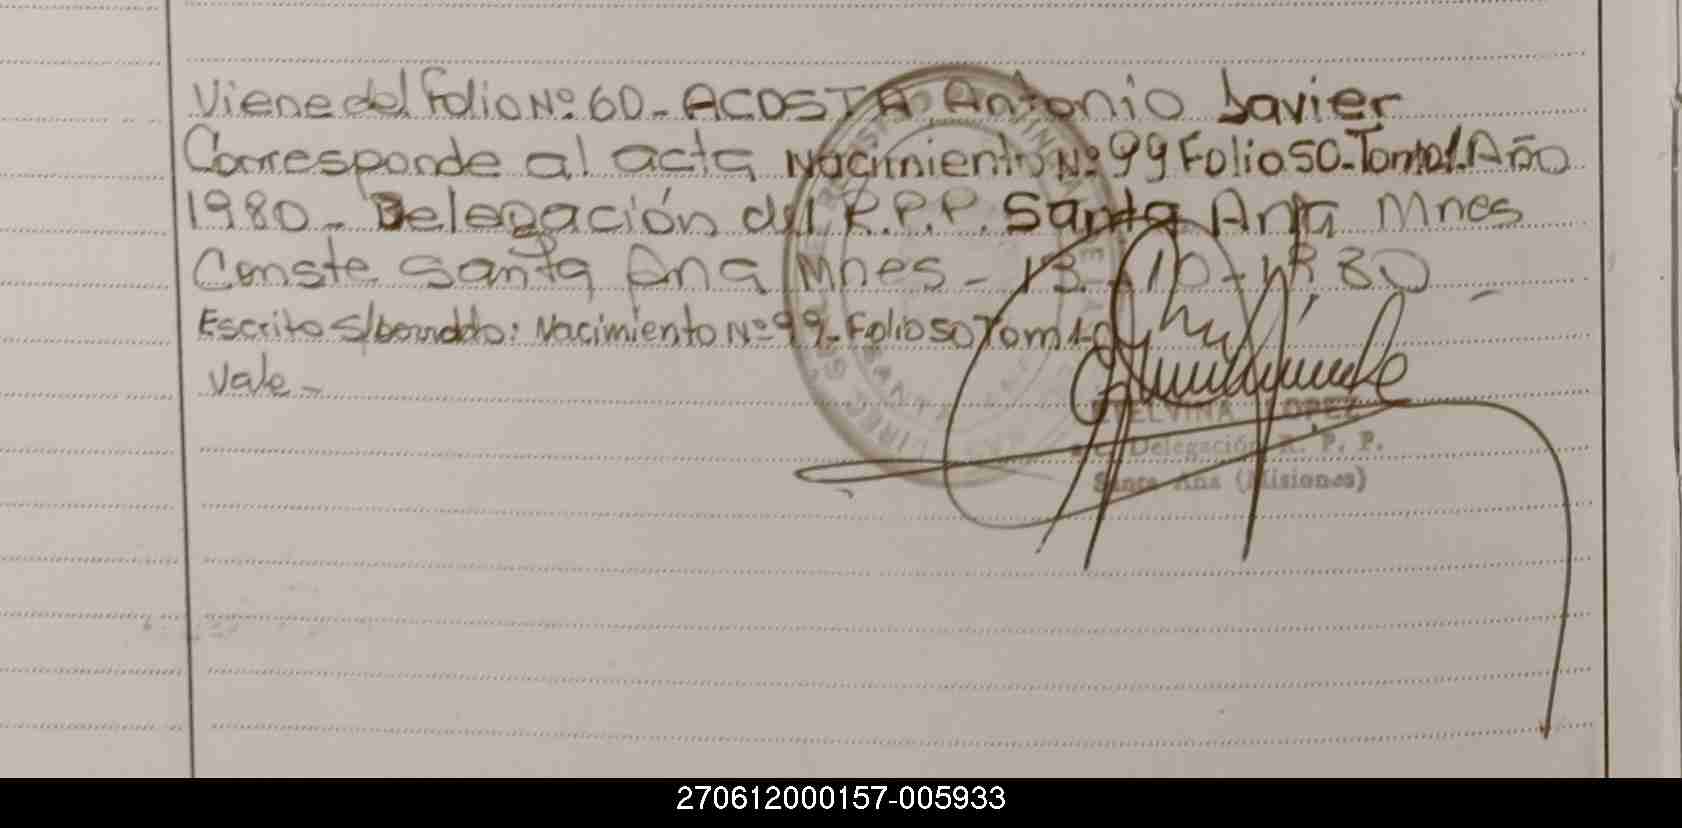 Viene del Folio Nº 60 - ACOSTA Antonio Javier
Corresponde al acta Nacimiento Nº 99 Folio 50 - Tomo 1. Año
1980 - Delegación del R.P.P. Santa Ana Mnes
Conste Santa Ana Mnes - 13 - 10 - 1980 -
Escrito S/borrado: Nacimiento Nº 99 - Folio 50 Tomo 1º
Vale -
ETELVINA LOPEZ
Delegación R. P. P.
Santa Ana (Misiones)
270612000157-005933